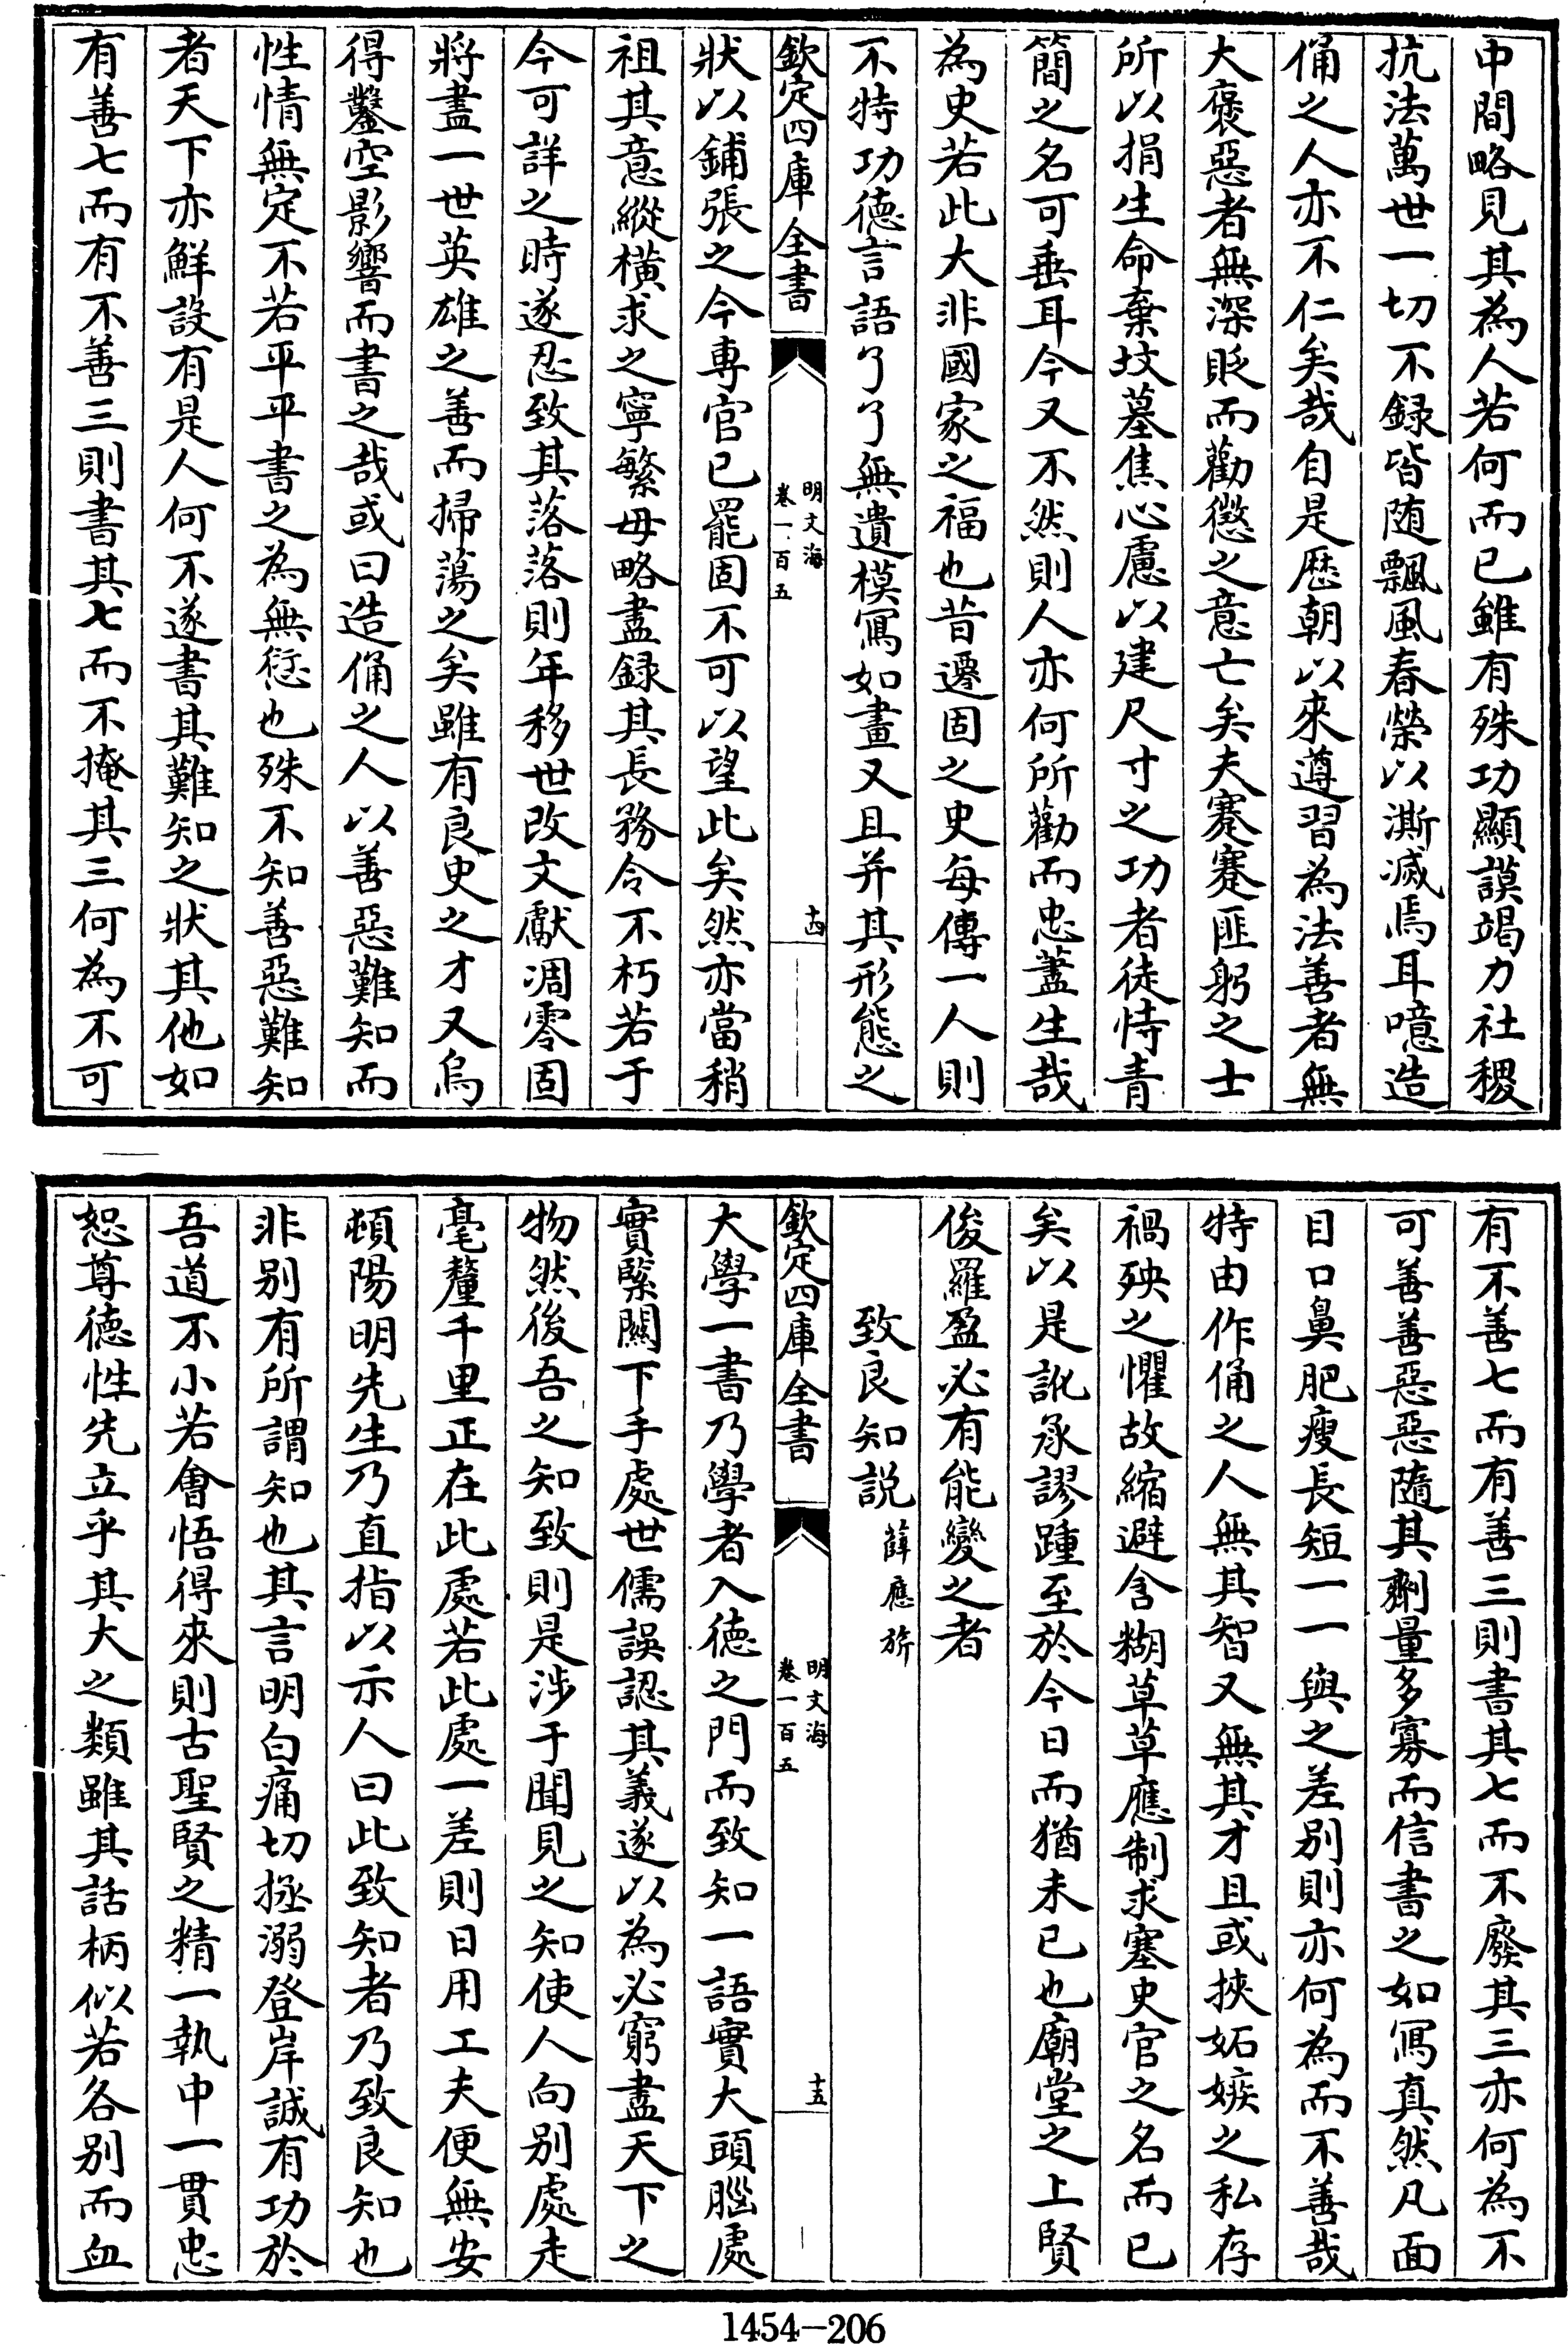 中間略見其為人若何而已雖有殊功顯謨竭力社稷
抗法萬世一切不録皆随飄風春榮以澌滅焉耳噫造
俑之人亦不仁矣哉自是歴朝以來遵習為法善者無
大褒惡者無深貶而勸懲之意亡矣夫蹇蹇匪躬之士
所以捐生命棄墳墓焦心慮以建尺寸之功者徒恃青
簡之名可垂耳今又不然則人亦何所勸而忠藎生哉
為史若此大非國家之福也昔遷固之史每傳一人則
不特功徳言語了了無遺模寫如畫又且并其形態之
欽定四庫全書
明文海
卷一百五
十四
狀以鋪張之今専官已罷固不可以望此矣然亦當稍
祖其意縱橫求之寧繁毋略盡録其長務令不朽若于
今可詳之時遂忍致其落落則年移世改文獻凋零固
將盡一世英雄之善而掃蕩之矣雖有良史之才又烏
得鑿空影響而書之哉或曰造俑之人以善惡難知而
性情無定不若平平書之為無愆也殊不知善惡難知
者天下亦鮮設有是人何不遂書其難知之狀其他如
有善七而有不善三則書其七而不掩其三何為不可
有不善七而有善三則書其七而不廢其三亦何為不
可善善惡惡隨其劑量多寡而信書之如寫真然凡面
目口鼻肥瘦長短一一與之差别則亦何為而不善哉
特由作俑之人無其智又無其才且或挾妬嫉之私存
禍殃之懼故縮避含糊草草應制求塞史官之名而已
矣以是訛承謬踵至於今日而猶未已也廟堂之上賢
俊羅盈必有能變之者
致良知説 薛應旂
欽定四庫全書
明文海
卷一百五
十五
大學一書乃學者入徳之門而致知一語實大頭腦處
實緊關下手處世儒誤認其義遂以為必窮盡天下之
物然後吾之知致則是涉于聞見之知使人向别處走
毫釐千里正在此處若此處一差則日用工夫便無安
頓陽明先生乃直指以示人曰此致知者乃致良知也
非别有所謂知也其言明白痛切拯溺登岸誠有功於
吾道不小若會悟得來則古聖賢之精一執中一貫忠
恕尊徳性先立乎其大之類雖其話柄似若各别而血
1454-206